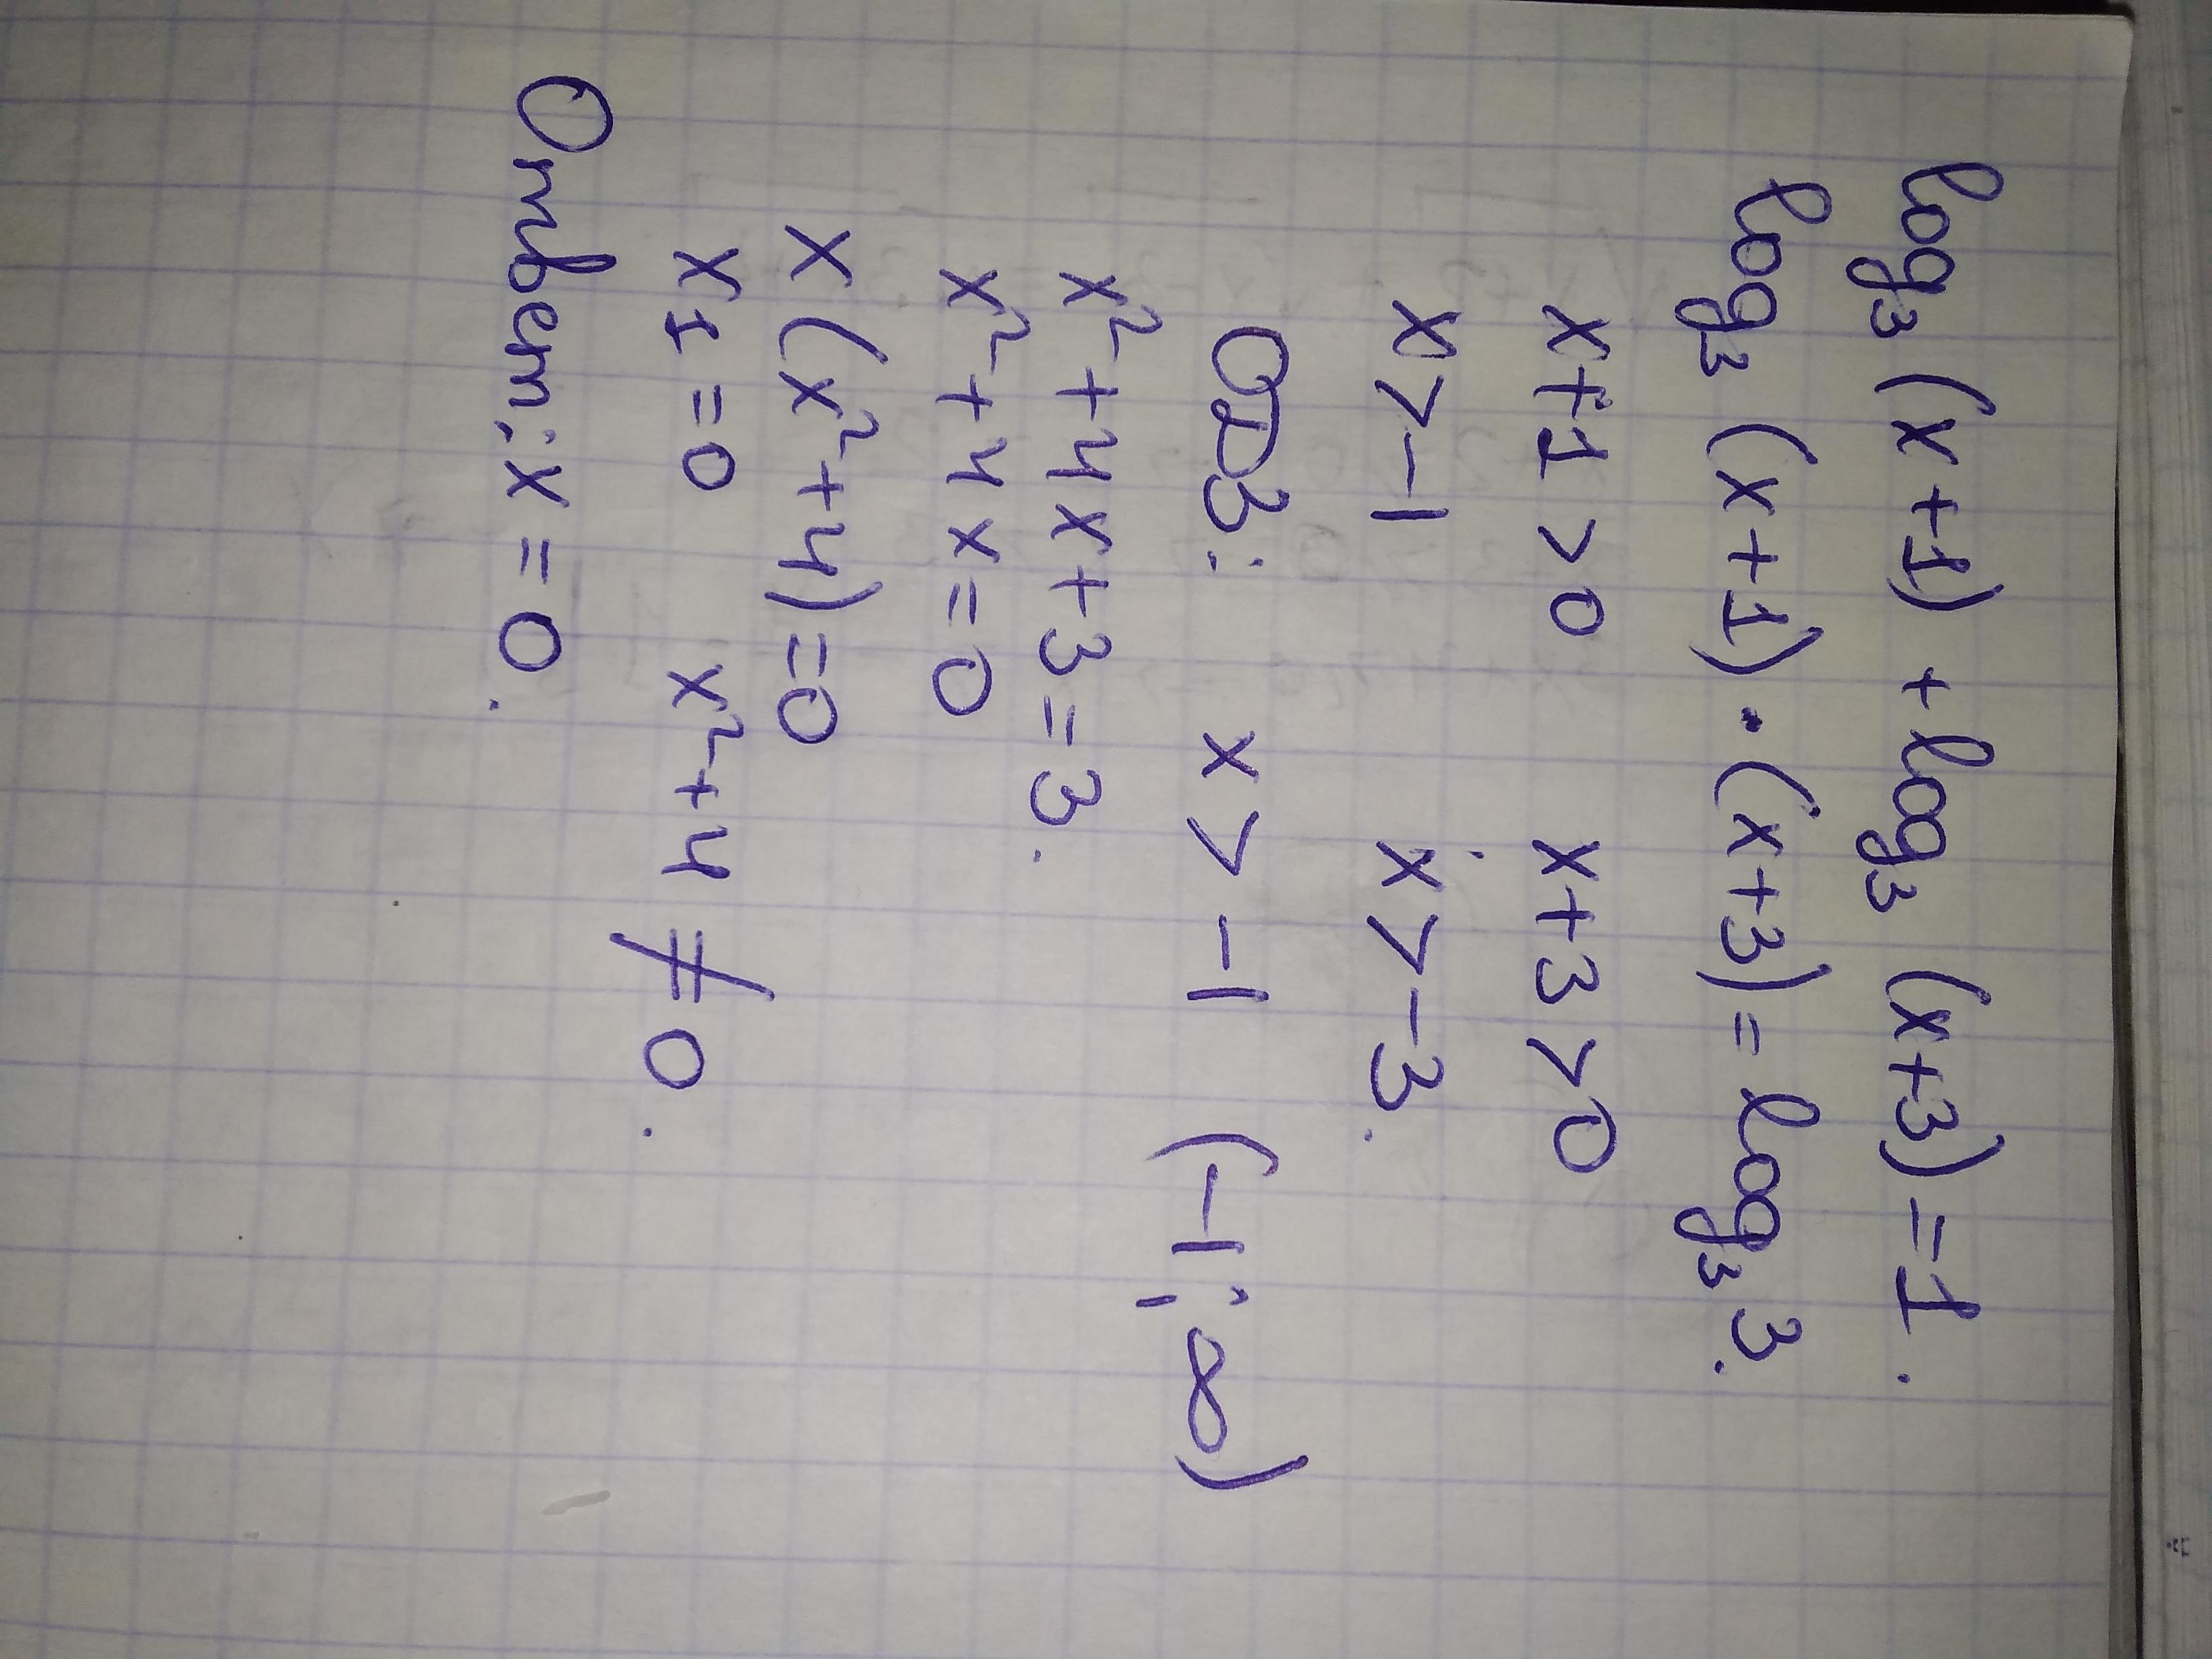 log₃ (x+1) + log₃ (x+3) = 1.
log₃ (x+1) · (x+3) = log₃ 3.
x+1>0 x+3>0
x>-1 x>-3.
ОДЗ: x > -1 (-1; ∞)
x²+4x+3=3.
x²+4x=0
x(x²+4)=0
x₁=0 x²+4≠0.
Ответ: x=0.